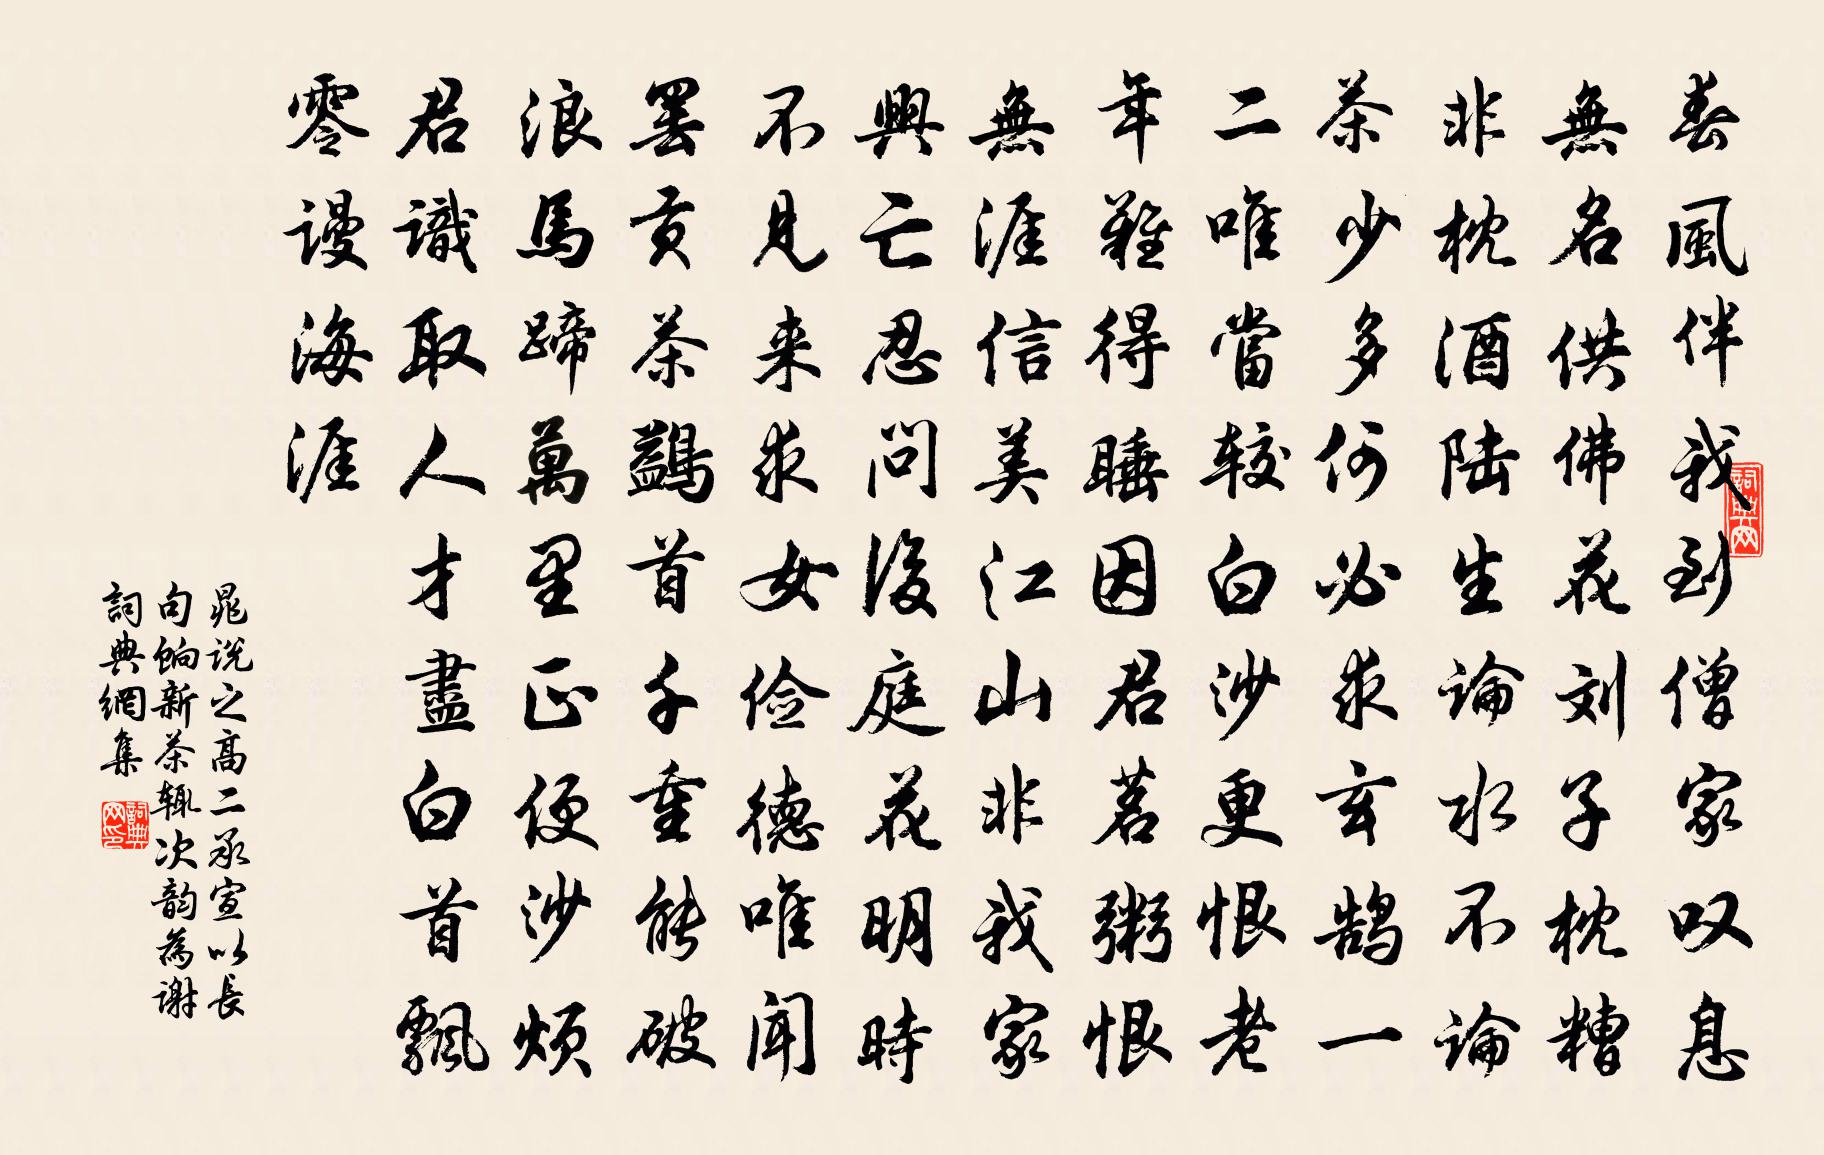 春風伴我到僧家叹息
無名供佛花刘子枕糟
非枕酒陆生論水不論
茶少多何必求玄鹄一
二唯當较白沙更恨老
年難得睡因君茗粥恨
無涯信美江山非我家
興亡忍問後庭花明時
不見来求女俭德唯聞
罢贡茶鷁首千重能破
浪馬蹄萬里正便沙烦
君識取人才盡白首飄
零谩海涯
晁说之高二承宣以長
句餉新茶辄次韵為谢
詞典網集